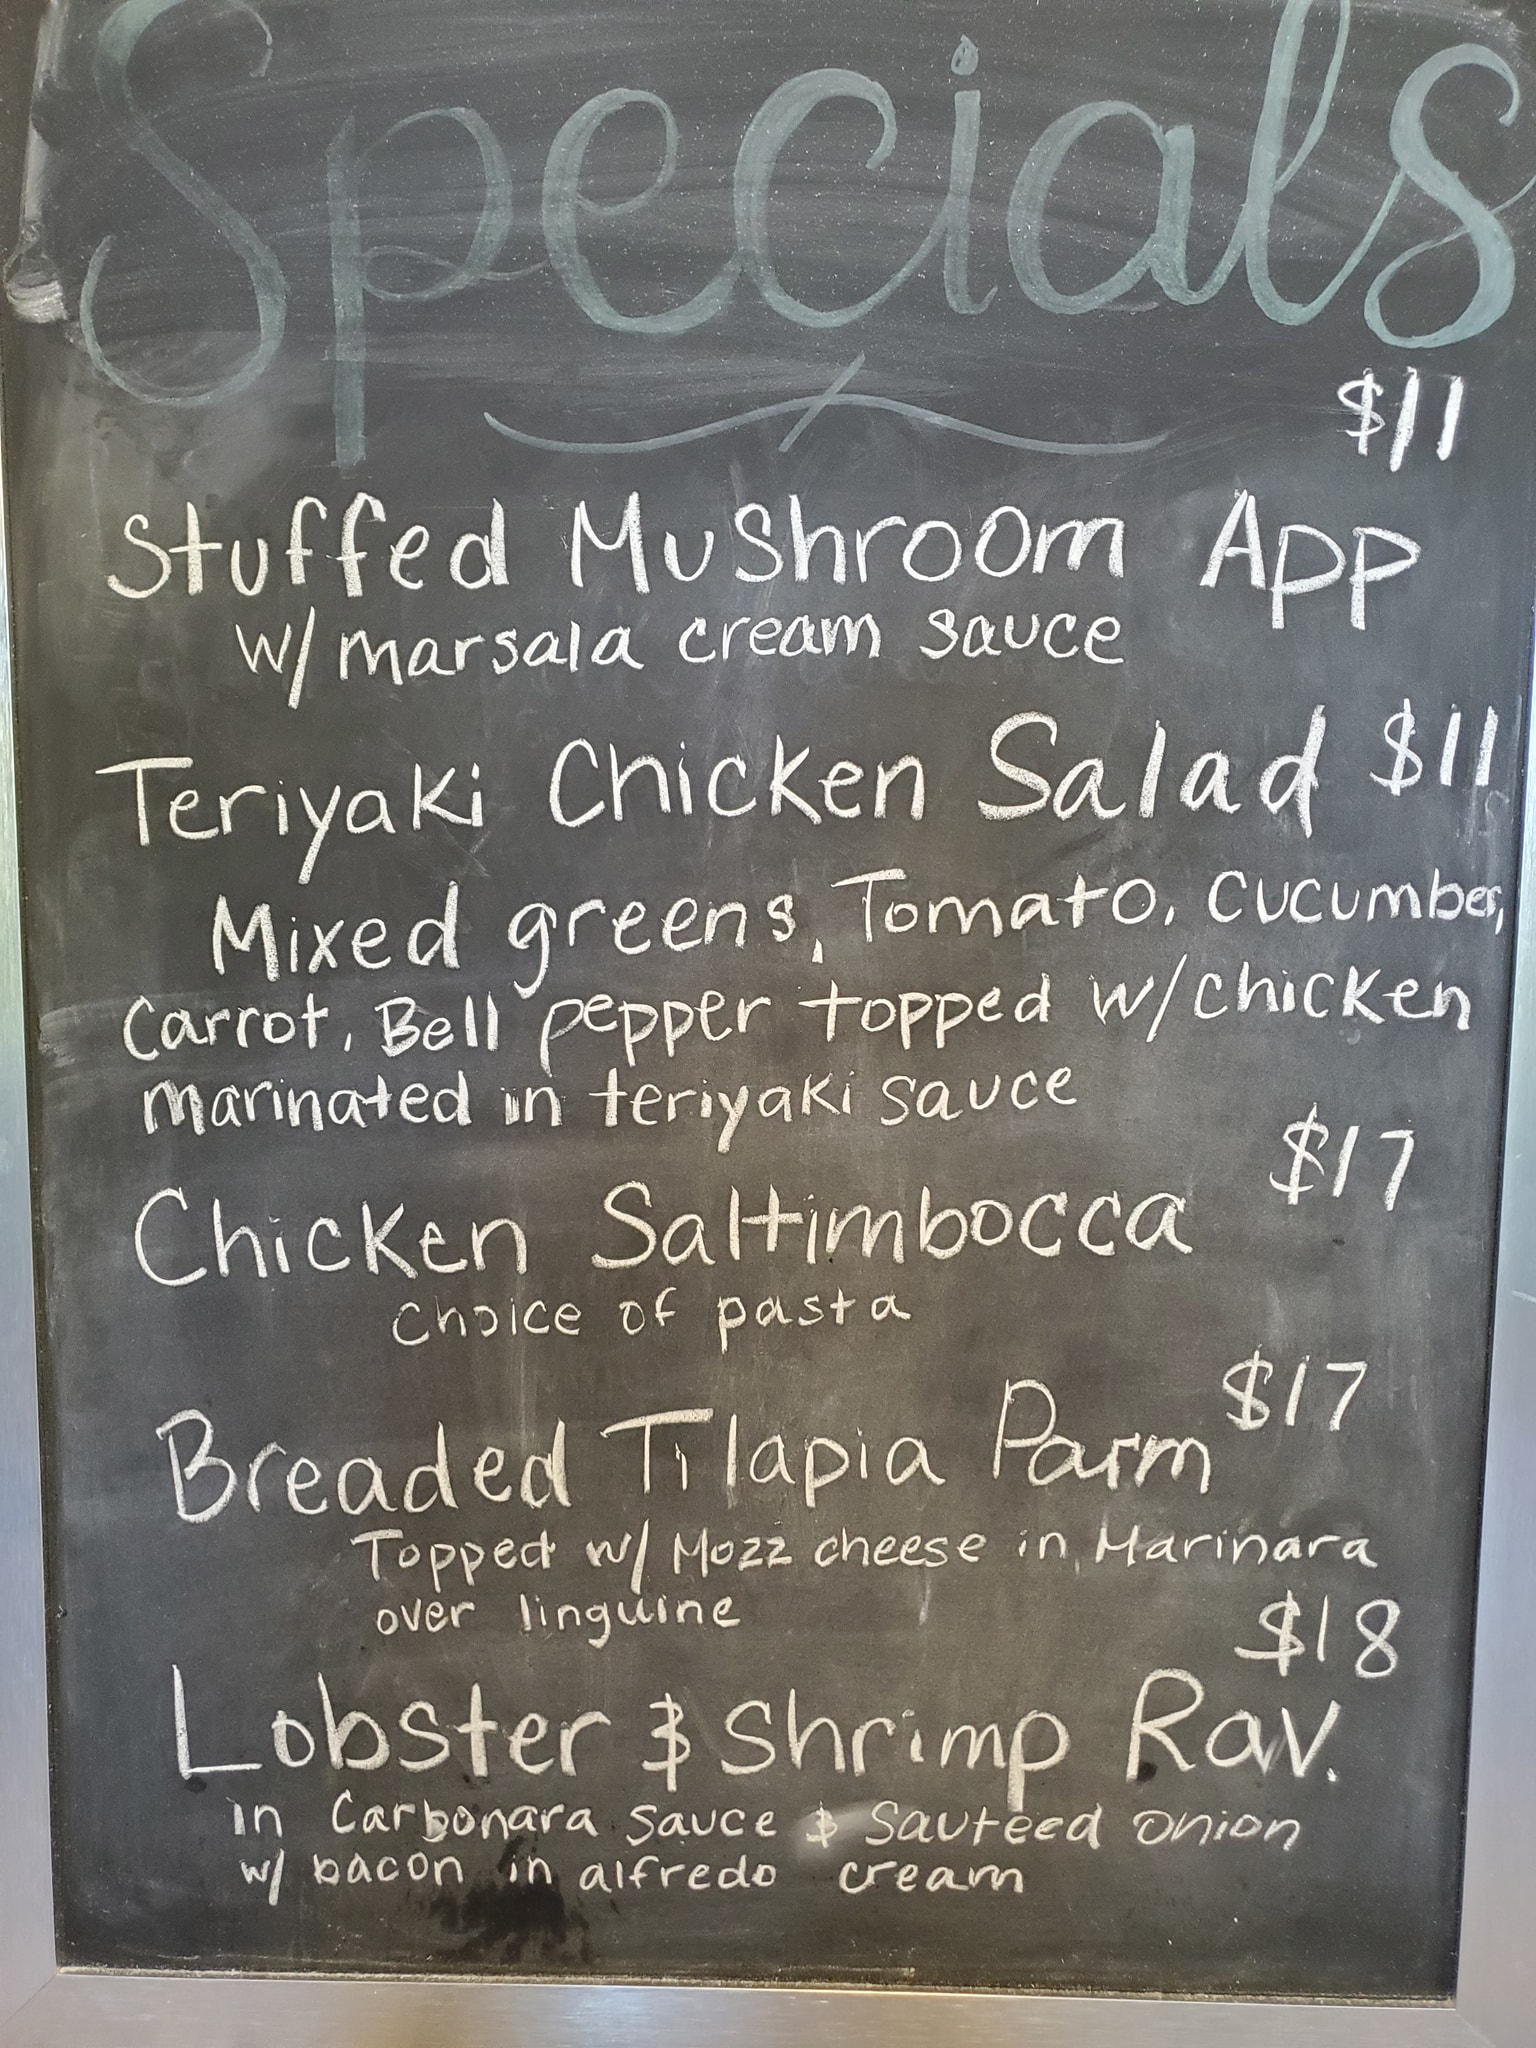 Specials
$11
Stuffed Mushroom App
w/ marsala cream sauce
Teriyaki Chicken Salad $11
Mixed greens, Tomato, cucumber,
Carrot, Bell pepper topped w/ chicken
marinated in teriyaki sauce
$17
Chicken Saltimbocca
choice of pasta
$17
Breaded Tilapia Parm
Topped w/ Mozz cheese in Marinara
over linguine
$18
Lobster & Shrimp Rav.
in Carbonara sauce & Sauteed onion
w/ bacon in alfredo cream